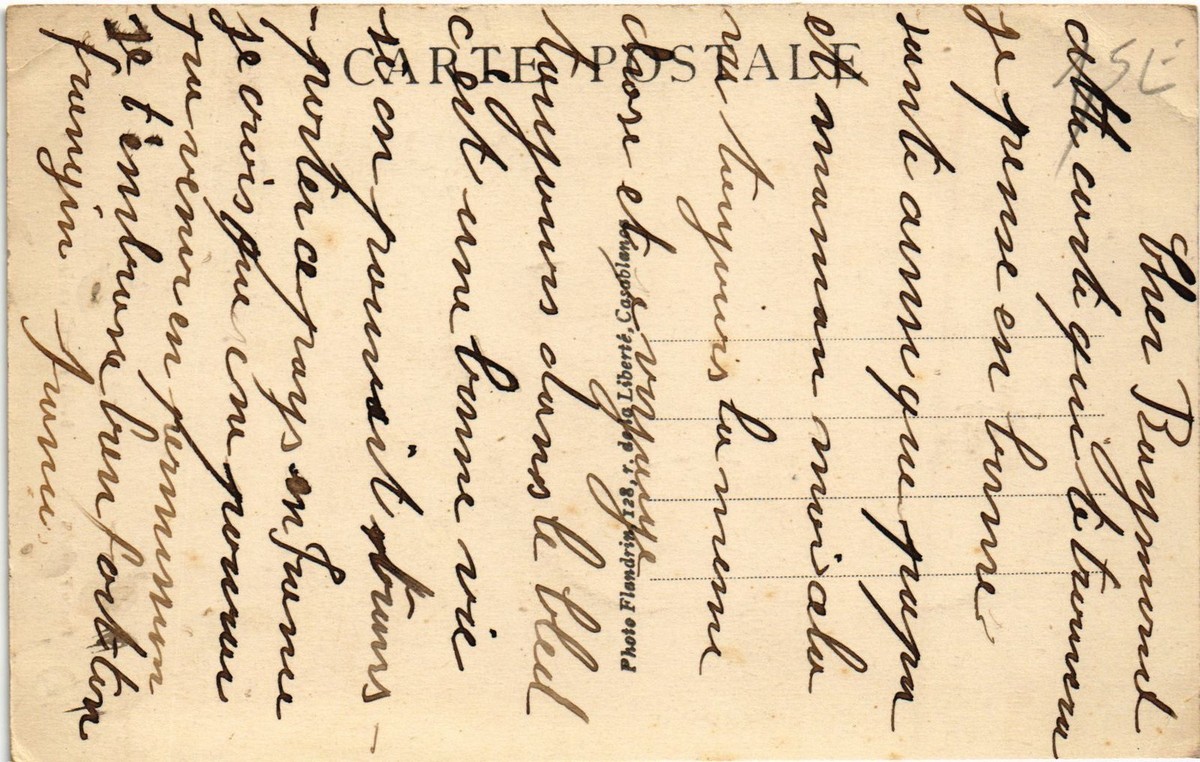 CARTE POSTALE
Photo Flandrin, 128, r. de la Liberté, Casablanca
Cher Raymond
cette carte qui te trouvera
je pense en bonne
santé ainsi que papa
et maman moi cela
va toujours la meme
chose et je voyage
toujours dans le bled
c'est une bonne vie
si on pouvait trans-
-porter ce pays en France
je crois que je pourai
venir en permission
Je t'embrasse bien fort ton
frangin